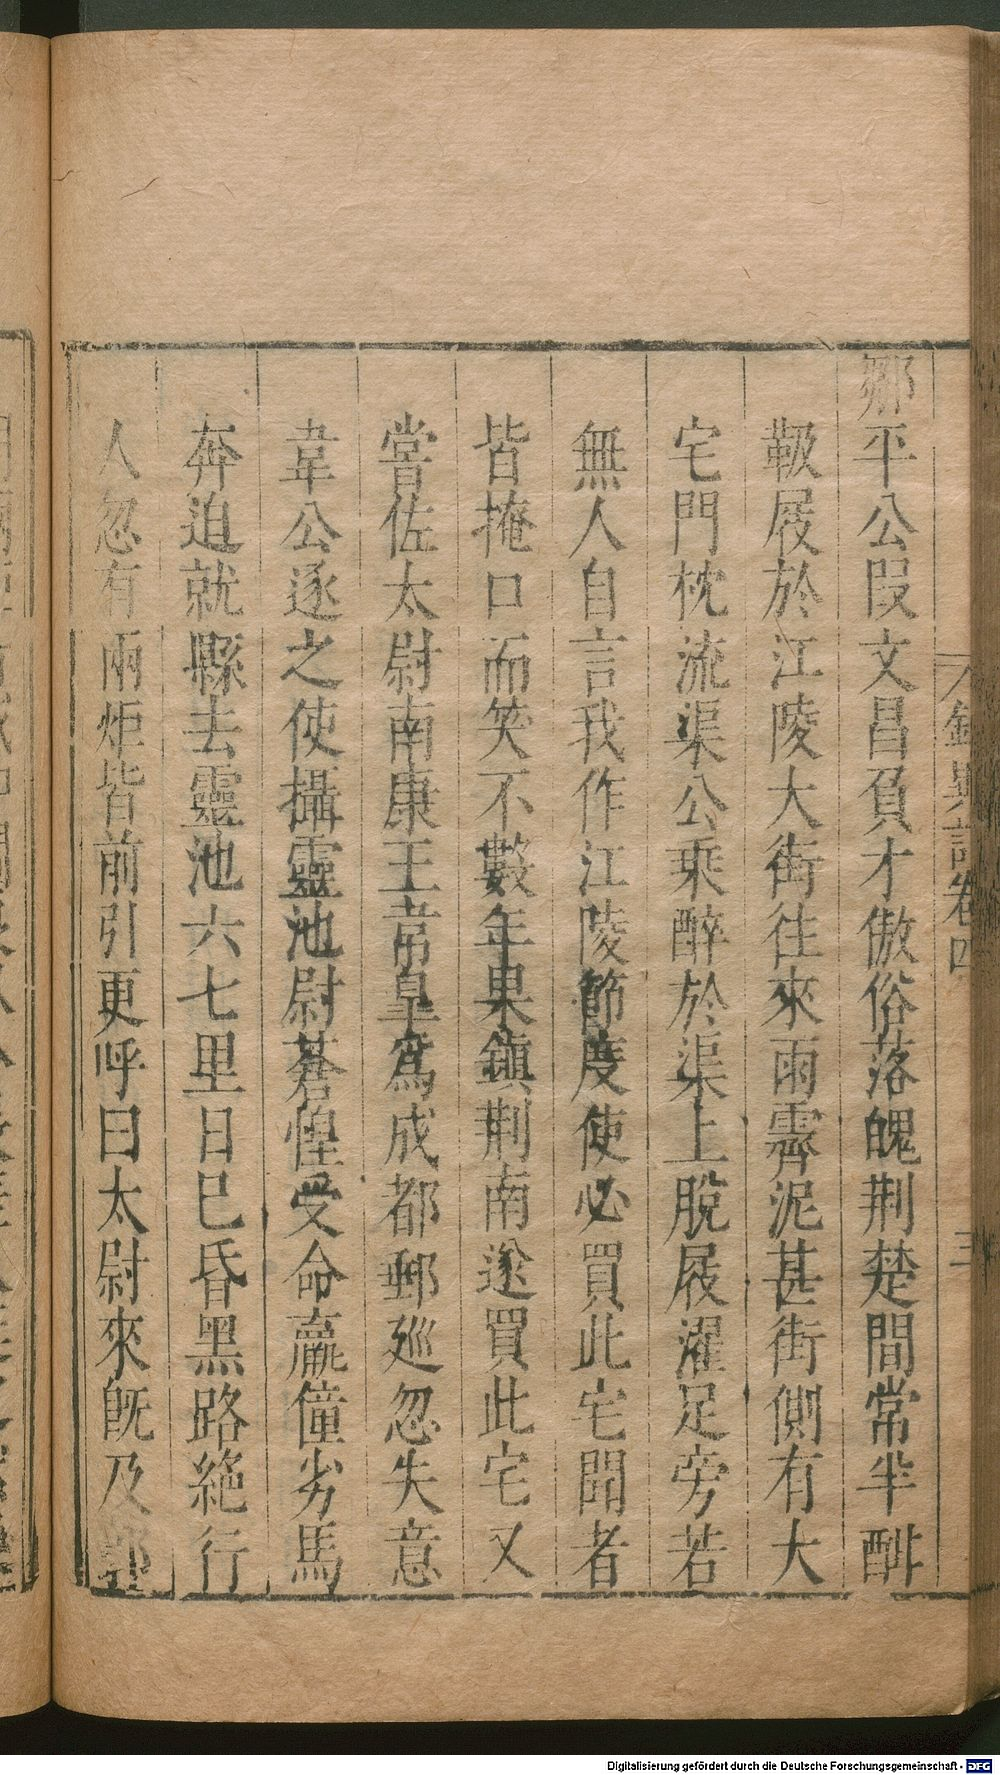 鄒平公叚文昌負才傲俗落魄荆楚間常半酣
靸屐於江陵大街往來雨霽泥甚街側有大
宅門枕流渠公乘醉於渠上脫屐濯足旁若
無人自言我作江陵節度使必買此宅聞者
皆掩口而笑不數年果鎮荆南遂買此宅又
嘗佐太尉南康王韋皐爲成都郵巡忽失意
韋公逐之使攝靈池尉蒼惶受命羸僮劣馬
奔迫就縣去靈池六七里日已昏黑路絶行
人忽有兩炬皆前引更呼曰太尉來旣及郭
錄異記卷四
三
Digitalisierung gefördert durch die Deutsche Forschungsgemeinschaft - DFG